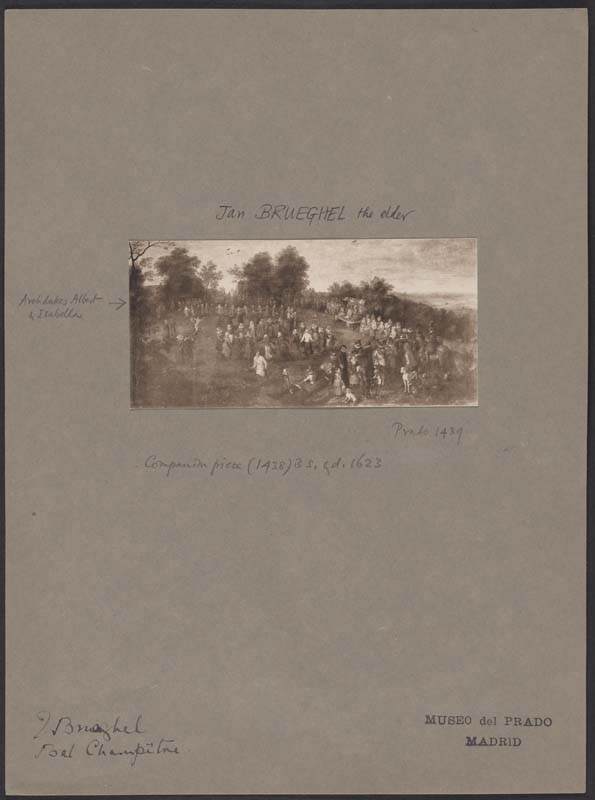 Jan BRUEGHEL the elder
Archdukes Albert
& Isabella
Prado 1439
Companion piece (1438) is s. & d. 1623
J Brueghel
Bal Champêtre
MUSEO del PRADO
MADRID